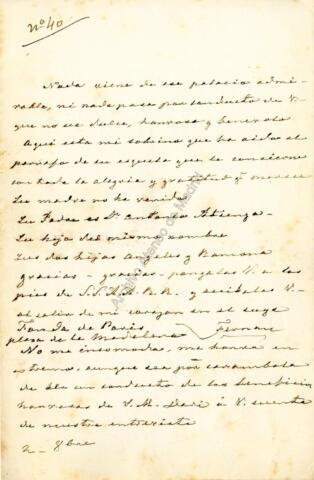 nº 40
Nada viene de ese palacio admi-
rable, ni nada pasa por conducto de V.
que no sea dulce, honroso y benevolo
Aqui esta mi sobrino que ha oido el
parrafo de su esquela que le concierne
con toda la alegria y gratitud q merece
Su madre no ha venido
Su Padre es Dn Antonio Atienza -
Su hijo del mismo nombre
Sus dos hijas Angeles y Ramona
gracias - gracias - pongalas V. a los
pies de S.S.A.A.R.R. y recibalas V.
al salir de mi corazon en el suyo
Fonda de Paris
plaza de la Madalena Fernan
No me incomoda, me honra en
estremo, aunque sea por carambola
de ser un conducto de los beneficios
honrosos de S. M. Daré á V. cuenta
de nuestra entrevista
2 - 8bre
Archivo Ateneo de Madrid